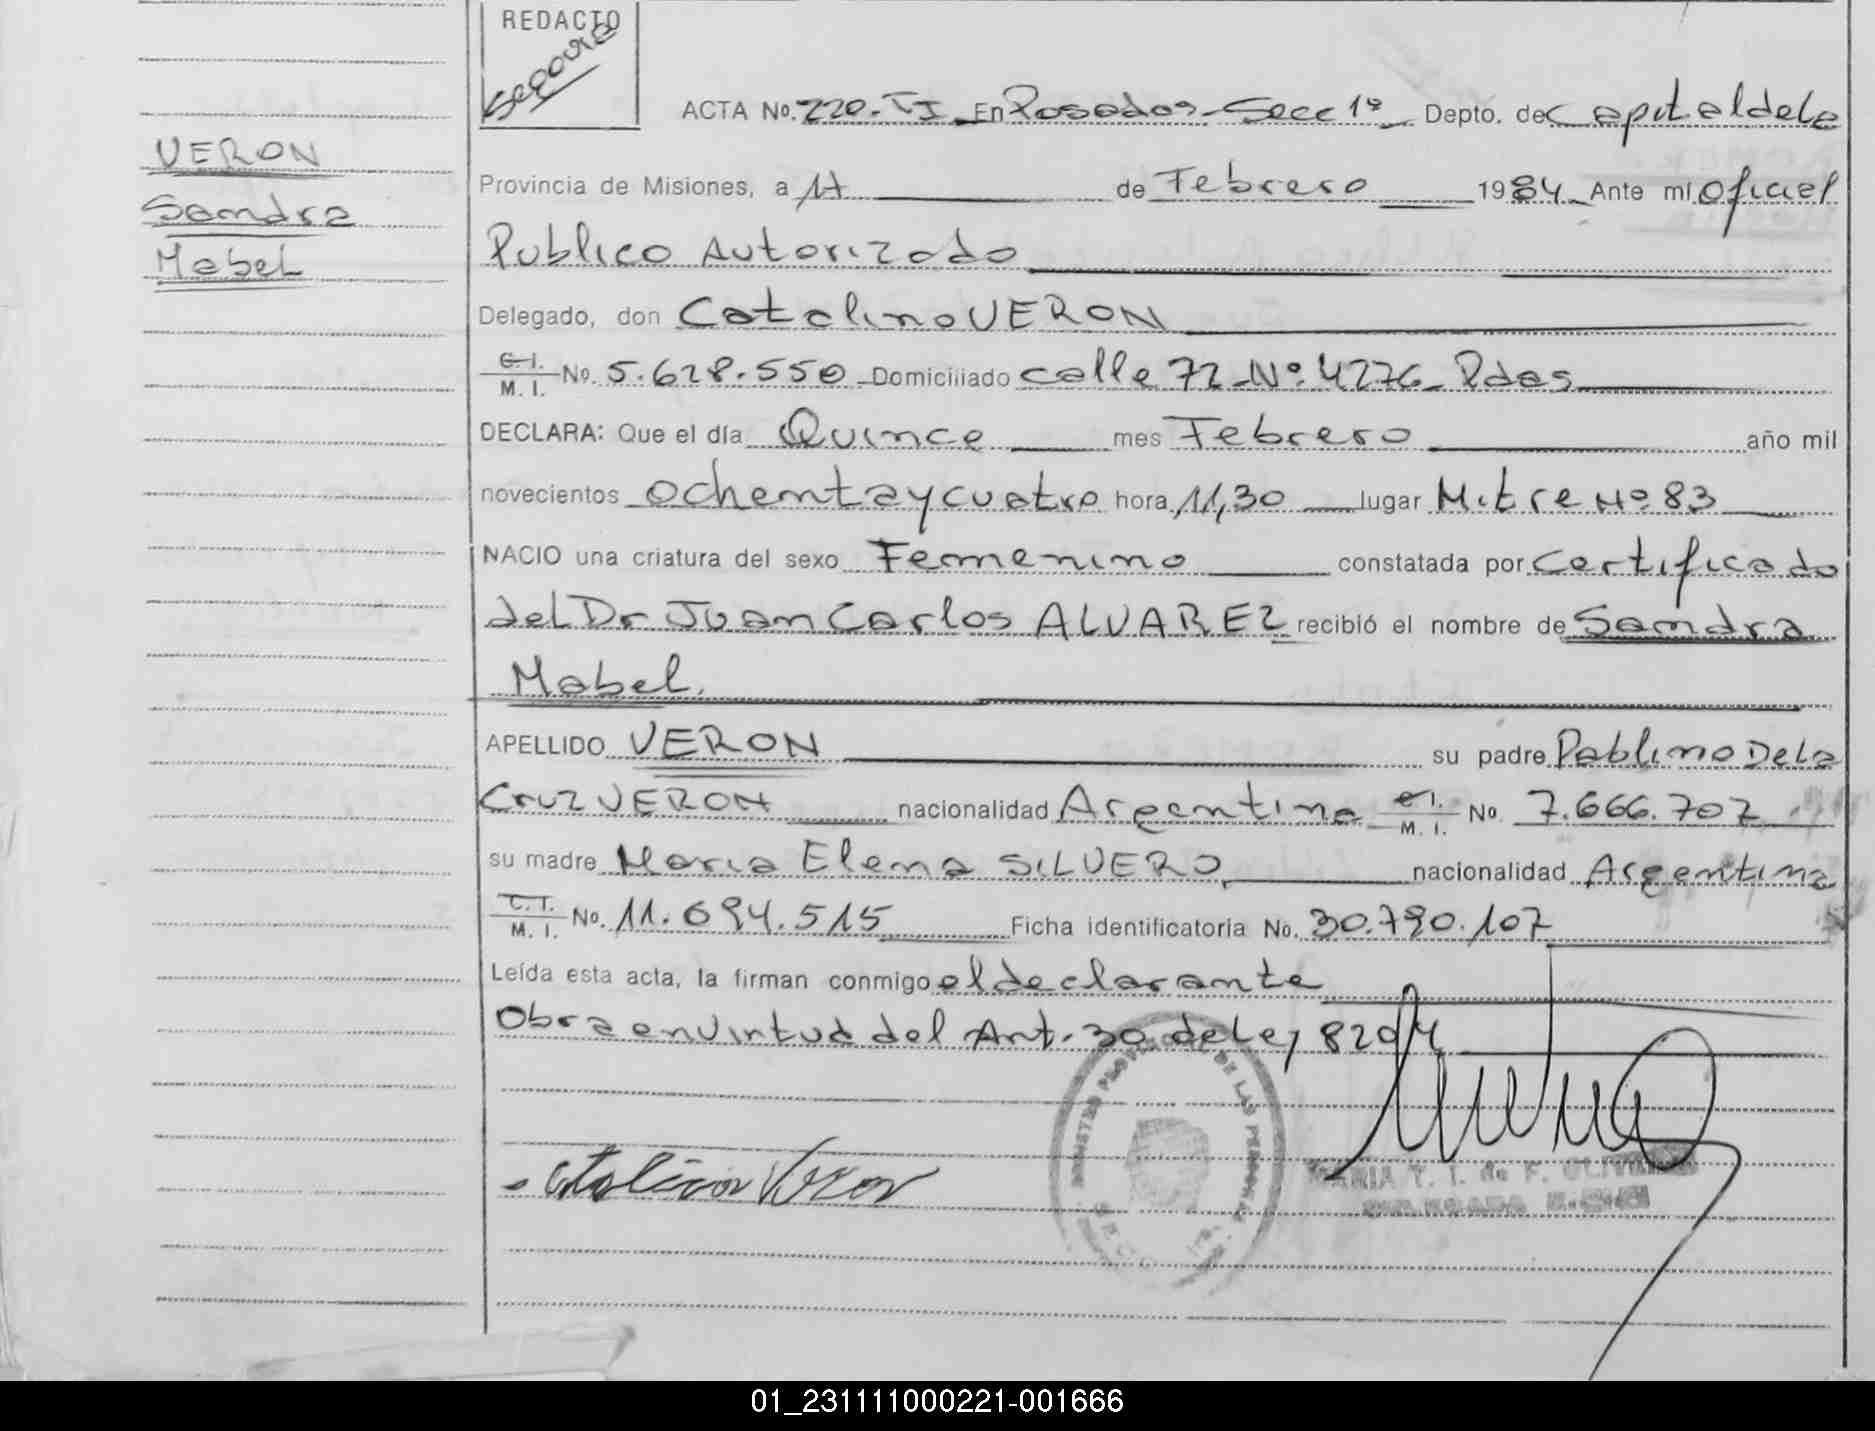 REDACTO
VERON
Sandra
Mabel
ACTA No. 220-TI En Posadas-Secc 1º Depto. de Capital de la
Provincia de Misiones, a 17 de Febrero 1984 Ante mí Oficial
Publico Autorizado
Delegado, don Catalino VERON
C.I. M. I. No. 5.628.550 Domiciliado calle 72 Nº 4276 Pdas
DECLARA: Que el día Quince mes Febrero año mil
novecientos ochenta y cuatro hora 11,30 lugar Mitre Nº 83
NACIO una criatura del sexo Femenino constatada por Certificado
del Dr Juan Carlos ALVAREZ recibió el nombre de Sandra
Mabel.
APELLIDO VERON su padre Pablino De la
Cruz VERON nacionalidad Argentina C.I. M. I. No. 7.666.707
su madre Maria Elena SILVERO nacionalidad Argentina
C.I. M. I. No. 11.694.515 Ficha identificatoria No. 30.790.107
Leída esta acta, la firman conmigo el declarante
Obra en virtud del Art. 30 de Ley 8204
Catalino Veron
REGISTRO PROVINCIAL DE LAS PERSONAS
MARIA T. I. de F. OLIVERA
DELEGADA
01_231111000221-001666